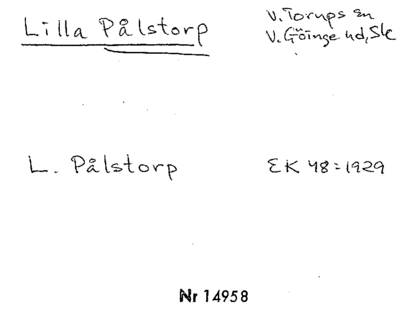 Lilla Pålstorp
V. Torups sn
V. Göinge hd, Sk
L. Pålstorp
EK 48 = 1929
Nr 14958